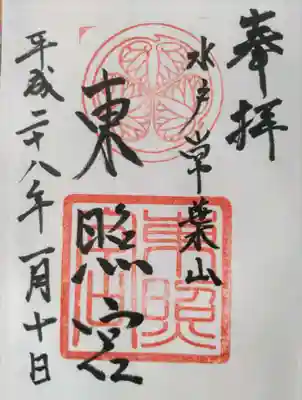 奉拝
水戸常葉山
東照宮
平成二十八年一月十日
東照宮